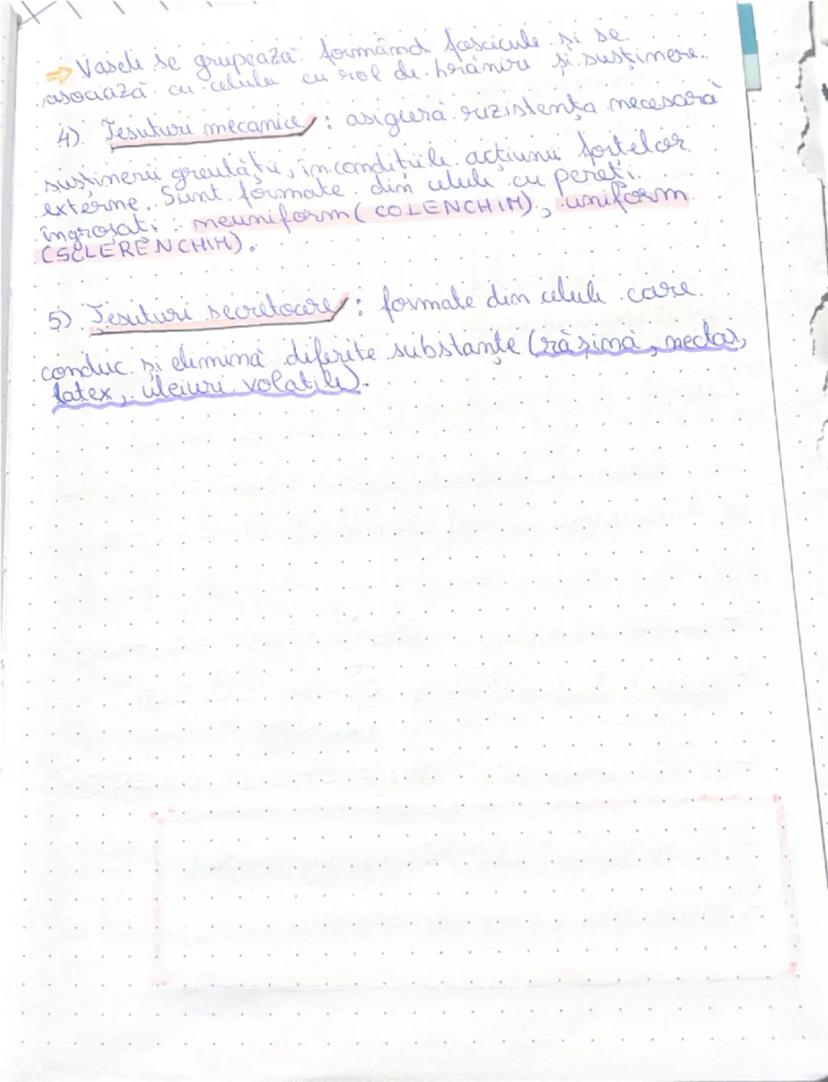 ⇒ Vasele se grupează formând fascicule și se
asociază cu celule cu rol de hrănire și susținere.
4) Țesuturi mecanice: asigură rezistența necesară
susținerii greutății, în condițiile acțiunii forțelor
externe. Sunt formate din celule cu pereți
îngroșați: neuniform (COLENCHIM), uniform
(SCLERENCHIM).
5) Țesuturi secretoare: formate din celule care
conduc și elimină diferite substanțe (rășină, nectar,
latex, uleiuri volatile).